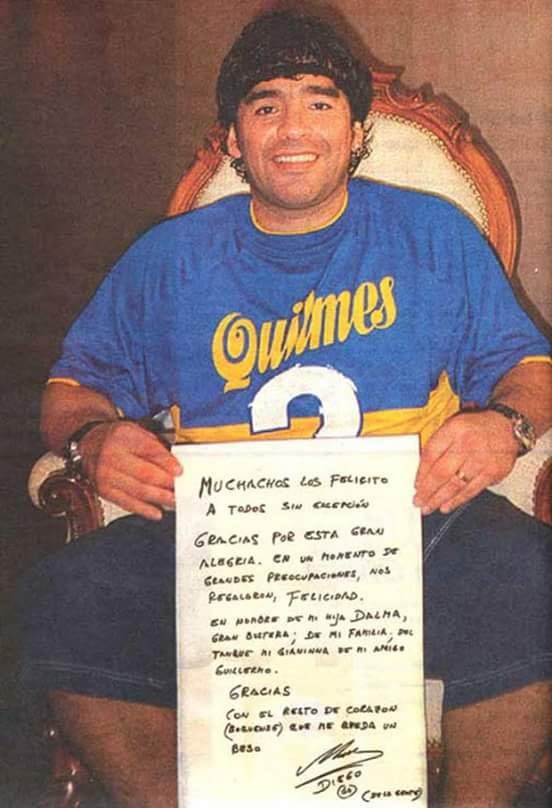 Quilmes
2
MUCHACHOS LOS FELICITO
A TODOS SIN EXCEPCIÓN
GRACIAS POR ESTA GRAN
ALEGRIA. EN UN MOMENTO DE
GRANDES PREOCUPACIONES, NOS
REGALARON, FELICIDAD.
EN NOMBRE DE MI HIJA DALMA,
GRAN BOSTERA; DE MI FAMILIA, DEL
TANQUE MI GIANINNA DE MI AMIGO
GUILLERMO.
GRACIAS
CON EL RESTO DE CORAZON
(BOQUENSE) QUE ME QUEDA UN
BESO
DIEGO
(DE LA GENTE)